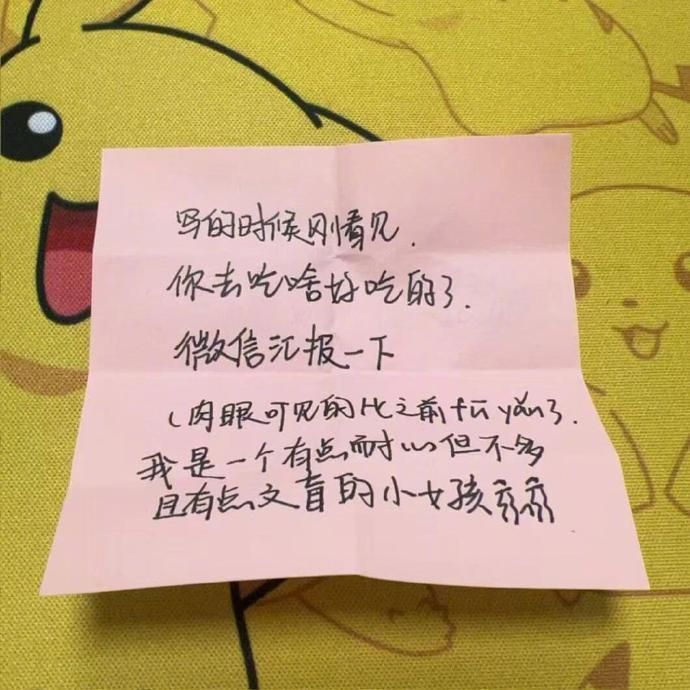 写的时候刚看见.
你去吃啥好吃的了.
微信汇报一下
(肉眼可见的比之前fū yǎn了.
我是一个有点耐心但不多
且有点文盲的小女孩